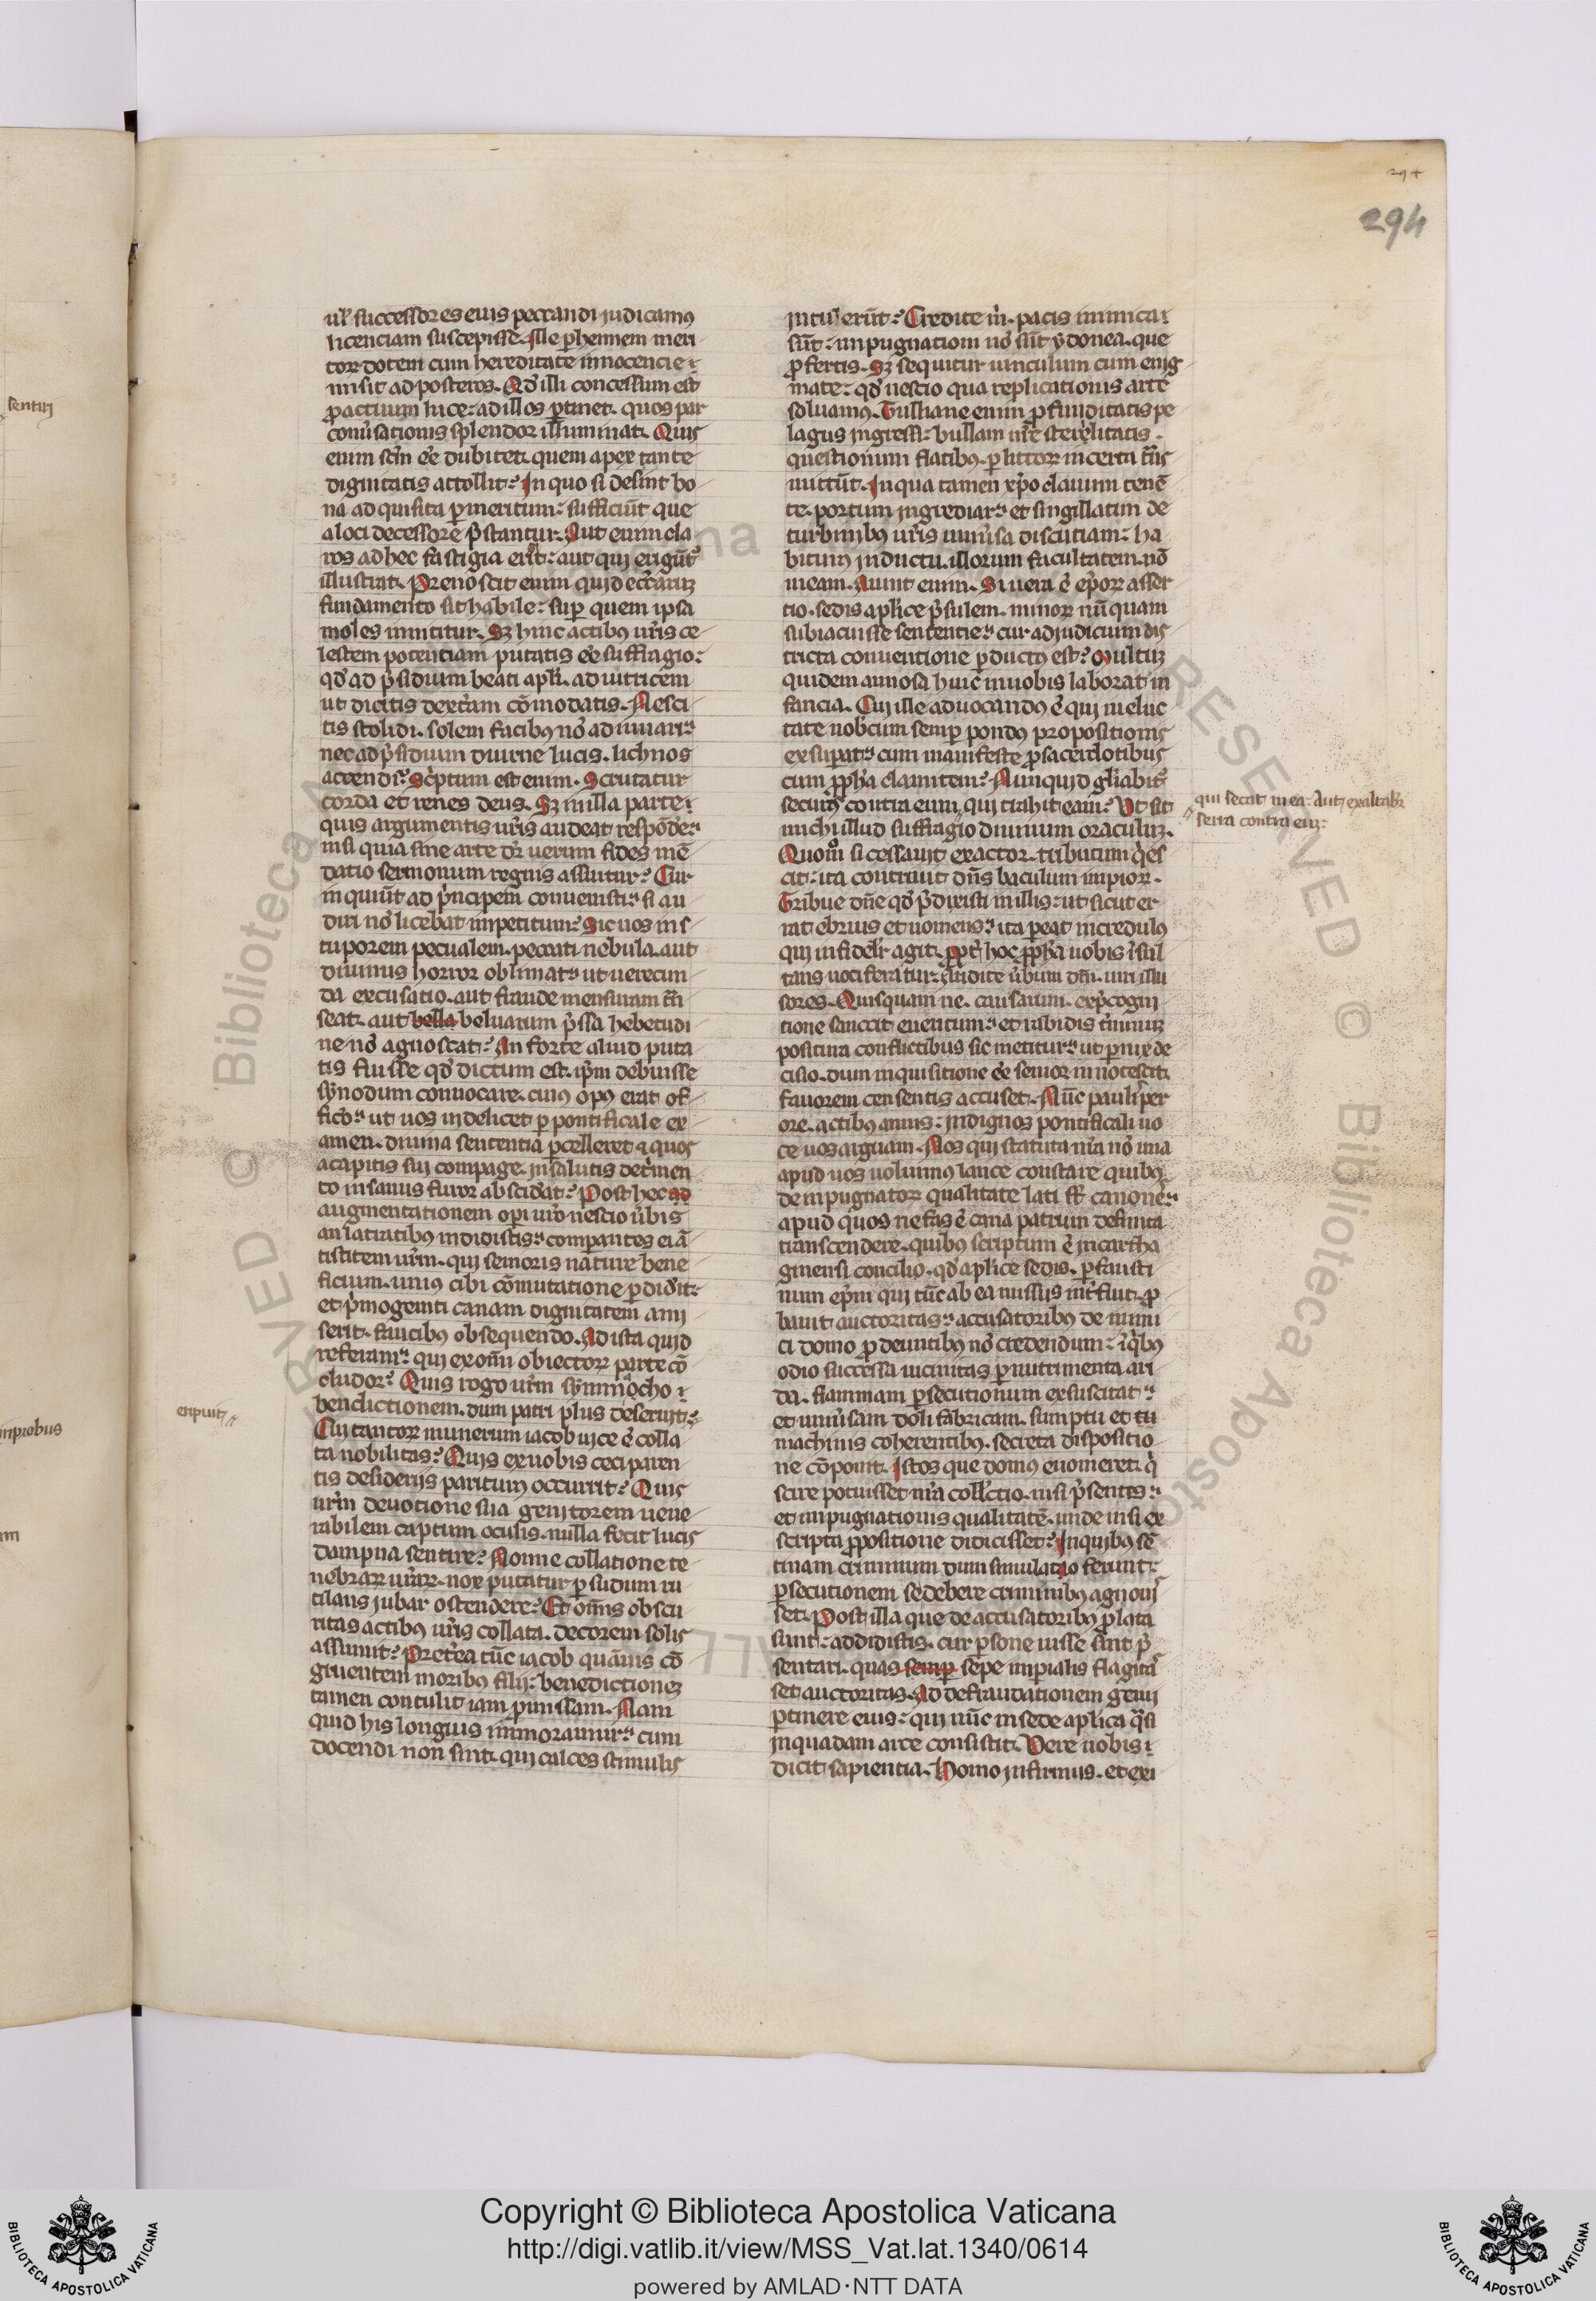 294
294
ul' successores eius peccandi judicamus
licenciam suscepisse. Ille perhennem meri
torum dotem cum hereditate innocencie
misit ad posteros. Qd' illi concessum est
pro actuum luce: ad illos ptinet. quos par
conu'sationis splendor illuminat. Quis
enim scm̄ ee dubitet. quem apex tante
dignitatis attollit? In quo si desint bo
na adquisita p meritum: sufficiūt que
a loci decessore p̄stantur. Aut enim cla
ros ad hec fastigia erigit: aut qui erigūt
illustrat. Prenoscit enim quid eccl'iaruz
fundamento sit habile: sup quem ipsa
moles innititur. Sz hinc actibus ur̄is ce
lestem potentiam putatis ee suffragio:
qd' ad p̄sidium beati apl'i. ad iutricem
ut dicitis dext'am cōmodatis. Nesci
tis stolidi. solem facibus no' adiuuari:
nec ad p̄sidium diurne lucis. lichnos
accendi? Sc'ptum est enim. Scrutatur
corda et renes deus. Sz in illa parte
quis argumentis ur̄is audeat respōde':
nisi quia sine arte dr̄ uerum fides mē
datio sermonum regnis assuitur? Cur
inquiūt ad p'ncipem conuenistis si au
diri no' licebat impetitum? Sic uos ins
tuporem pecualem. peccati nebula. aut
diuinus horror oblimat: ut uerecun
da excusatio. aut fraude mensuram t'n
seat. aut bella beluarum p̄ssa hebetudi
ne no' agnoscat? An forte aliud puta
tis fuisse qd' dictum est. ip̄m debuisse
synodum conuocare. cuius opus erat of
ficio: ut uos uidelicet p pontificale ex
amen. diuina sententia pcelleret & quos
a capitis sui compage. in salutis det'men
to insanus furor absciderat? Post hec ad
augmentationem opi uro nescio u'bis
an latratibus indidistis: comparantes ei ā
tistitem ur̄m. qui senioris nature bene
ficium. unius cibi cōmutatione pdidit:
et p'mogeniti canam dignitatem ami
serit. faucibus obsequendo. Ad ista quid
referam: qui ex om̄i obiectorum parte cō
cludor? Quis rogo ur̄m synmocho
benedictionem. dum patri plus deseruit:
eripuit
Cui tantorum munerum iacob uice ē colla
ta nobilitas? Quis ex uobis ceci paren
tis desiderijs pariturus occurrit? Quis
ur̄m deuotione sua genitorem uene
rabilem captum oculis. nulla fecit lucis
dampna sentire? Nonne collatione te
nebrarum ur̄arum. nox putatur p sudum ru
tilans jubar ostendere? Et om̄is obscu
ritas actibus ur̄is collata. decorem solis
assumit? Pret'ea tūc iacob quāuis cō
gruentem moribus filij: benedictionez
tamen contulit iam pmissam. Nam
quid his longius inmoramur: cum
docendi non sint. qui calces stimulis
intulerūt? Credite m'. pacis inimica
sūt: inpugnationi no' sūt ydonea. que
pfertis. Sz sequitur uinculum cum enig
mate: qd' nescio qua replicationis arte
soluamus. Tulliane enim pfunditatis pe
lagus ingressi: bullam nr̄e sterelitatis.
questionum flatibus. p littorum incerta t'ns
mittūt. In qua tamen xp̄o clauum tenē
te. portum ingrediar: et singillatim de
turbinibus ur̄is uniu'sa discutiam: ha
bitura inductu. illorum facultatem. nō
meam. Aiunt enim. Si uera ē ep̄orum asser
tio. sedis aplice p̄sulem. minorum nūquam
subiacuisse sententie: cur ad judicium dis
tricta conuentione pductus est? Multuz
quidem annosa huic in uobis laborat in
fancia. Cui ille aduocandus ē qui meluc
tate nobcum semp pondus propositionis
exsupat: cum manifeste p sacerdotibus
cum ppha clamitem? Nunquid gl'iabit'
securis contra eum qui trahit eam? Ut sit
qui secat in ea: aut exaltabr̄
serra contra eu3:
michi illud suffragio diuinum oraculuz.
Quomo si cessauit exactor. tributum q'es
cit: ita contriuit dn̄s baculum impiorum.
Tribue dn̄e qd' p̄dixisti in illis: ut sicut er
rat ebrius et uomens: ita peat incredulus
qui infidel'r agit. ppt' hoc ppha uobis īsul
tans uociferatur: Audite u'bum dn̄i. uiri illu
sores. Quisquam ne. causarum. ex p̄cogni
tione sanccit euentum: et rabidis t'minuz
positura conflictibus sic metitur: ut pnix de
cisio. dum inquisitione ee senior innotescit.
fauorem censentis accuset. Nūc pauliper
ore. actibus anius: indignos pontificali uo
ce uos arguam. Nos qui statuta nr̄a no' una
apud uos uolumus lance constare quibus
de inpugnatorum qualitate lati st̄ canones:
apud quos nefas ē cana patrum definita
transcendere. quibus scriptum ē in cartha
ginensi concilio. qd' aplice sedis. p fausti
num ep̄m qui tūc ab ea missus int'fuit. p
bauit auctoritas: accusatoribus de inimi
ci domo pdeuntibus no' credendum: ī q'bus
odio successa uicinitas p nutrimenta ari
da. flammam psecutionum exsuscitat:
et uniu'sam doli fabricam. sumptu et tu
machinis coherentibus. secreta dispositio
ne cōponit. Istos que domus euomeret. q'
scire potuisset nr̄a coll'ctio. nisi p̄sentes:
et inpugnationis qualitatē. unde nisi ex
scripta ppositione didicisset? In quibus sē
tinam criminum dum simulatio ferunt:
psecutionem se debere criminibus agnouis
set. Post illa que de accusatoribus plata
sunt: addidistis. cur psone iusse sint p̄
sentari. quas semp sepe imperialis flagitas
set auctoritas. Ad defraudationem genij
ptinere eius: qui nūc in sede aplica q'si
in quadam arce consistit. Vere uobis
dicit sapientia. Homo infirmus. et exi
sentiri
inprobus
Copyright © Biblioteca Apostolica Vaticana
http://digi.vatlib.it/view/MSS_Vat.lat.1340/0614
powered by AMLAD·NTT DATA
BIBLIOTECA APOSTOLICA VATICANA
BIBLIOTECA APOSTOLICA VATICANA